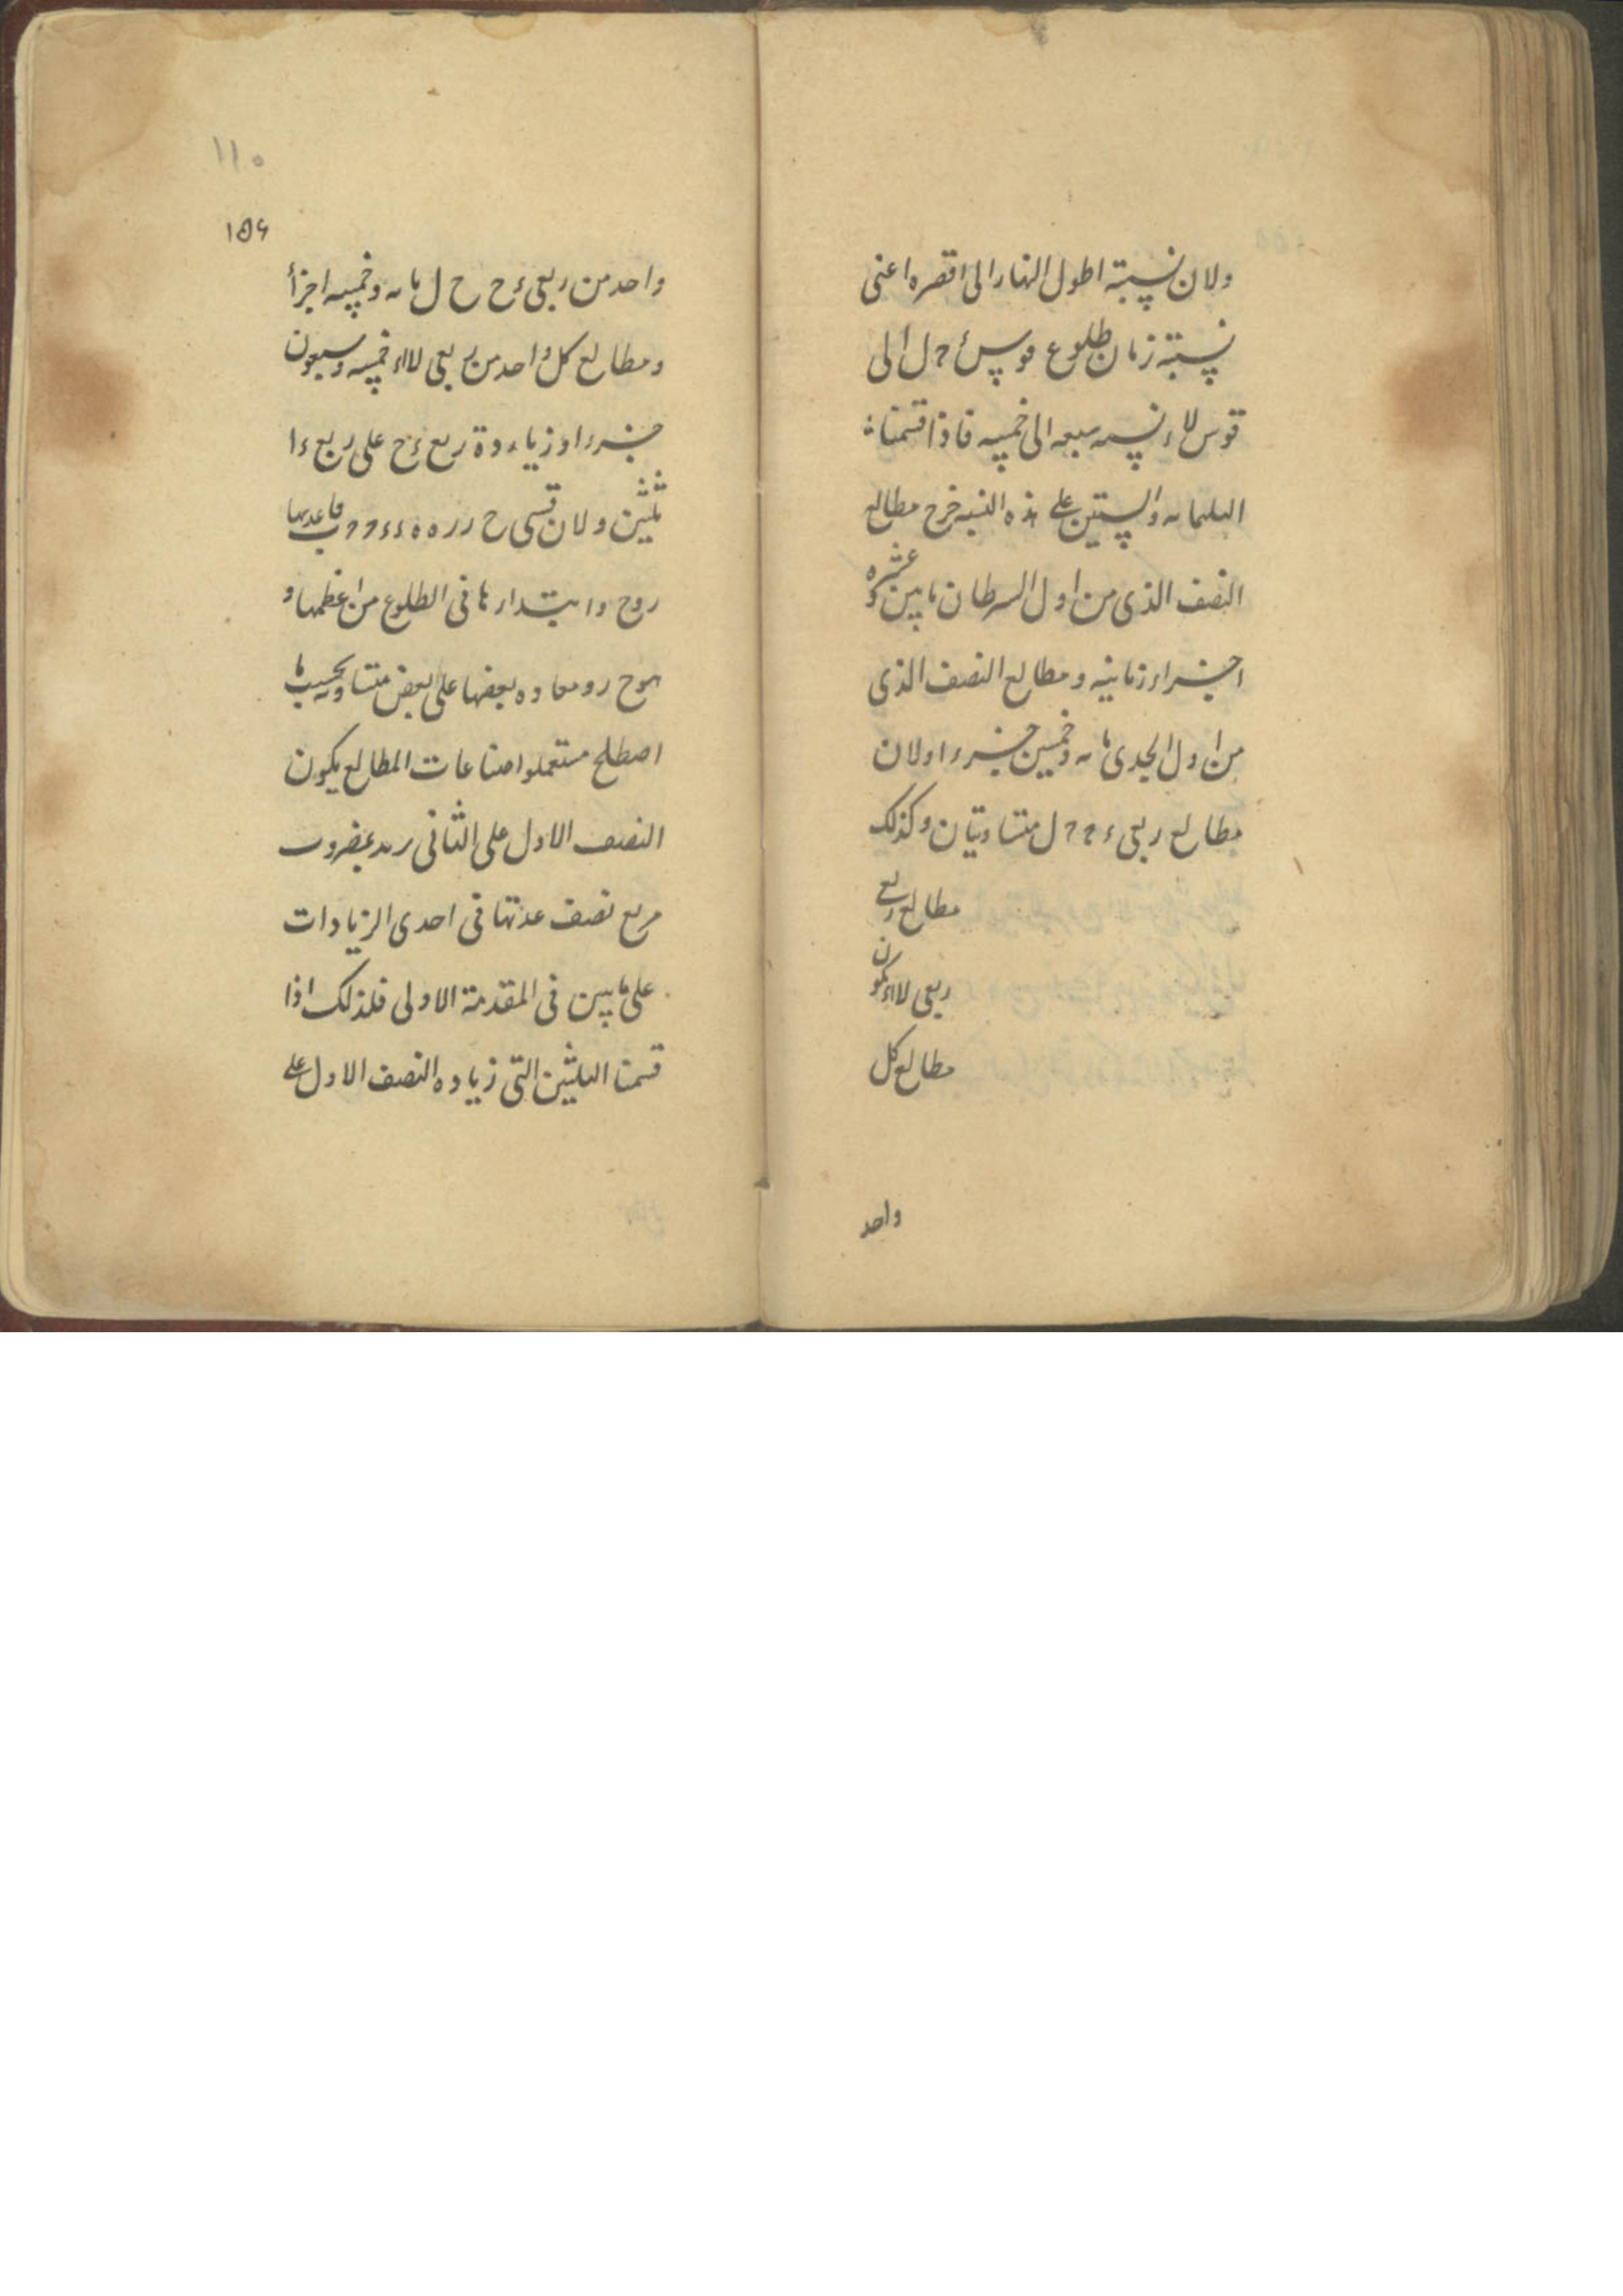 ولان نسبة اطول النهار الى اقصره اعنى
نسبة زمان طلوع قوس ء ح ل الى
قوس لاء نسبه سبعه الى خمسه فاذا قسمنا
الثلثمايه والستين على هذه النسبه خرج مطالع
النصف الذى من اول السرطان مايتين وعشره
اجزاء زمانيه ومطالع النصف الذى
من اول الجدى مايه وخمسين جزءا ولان
مطالع ربعى ء ح ح ل متساويتان وكذلك
مطالع ربعى
ربعى لا اء يكون
مطالع كل
واحد
١١٠
١٥٦
واحد من ربعى ء ح ح ل مايه وخمسه اجزأ
ومطالع كل واحد من ربعى لا اء خمسه وسبعون
جزءا وزيادة ربع ء ح على ربع ءا
ثلثين ولان قسى ح ر ر ه ه ء
وابتدارها فى الطلوع من اعظمها و
بعضها على بعض متساويه بحسب ما
اصطلح مستعملوا صناعات المطالع يكون
النصف الاول على الثانى بمضروب
مربع نصف عدتها فى احدى الزيادات
على ما بين فى المقدمة الاولى فلذلك اذا
قسمنا الثلثين التى زياده النصف الاول على